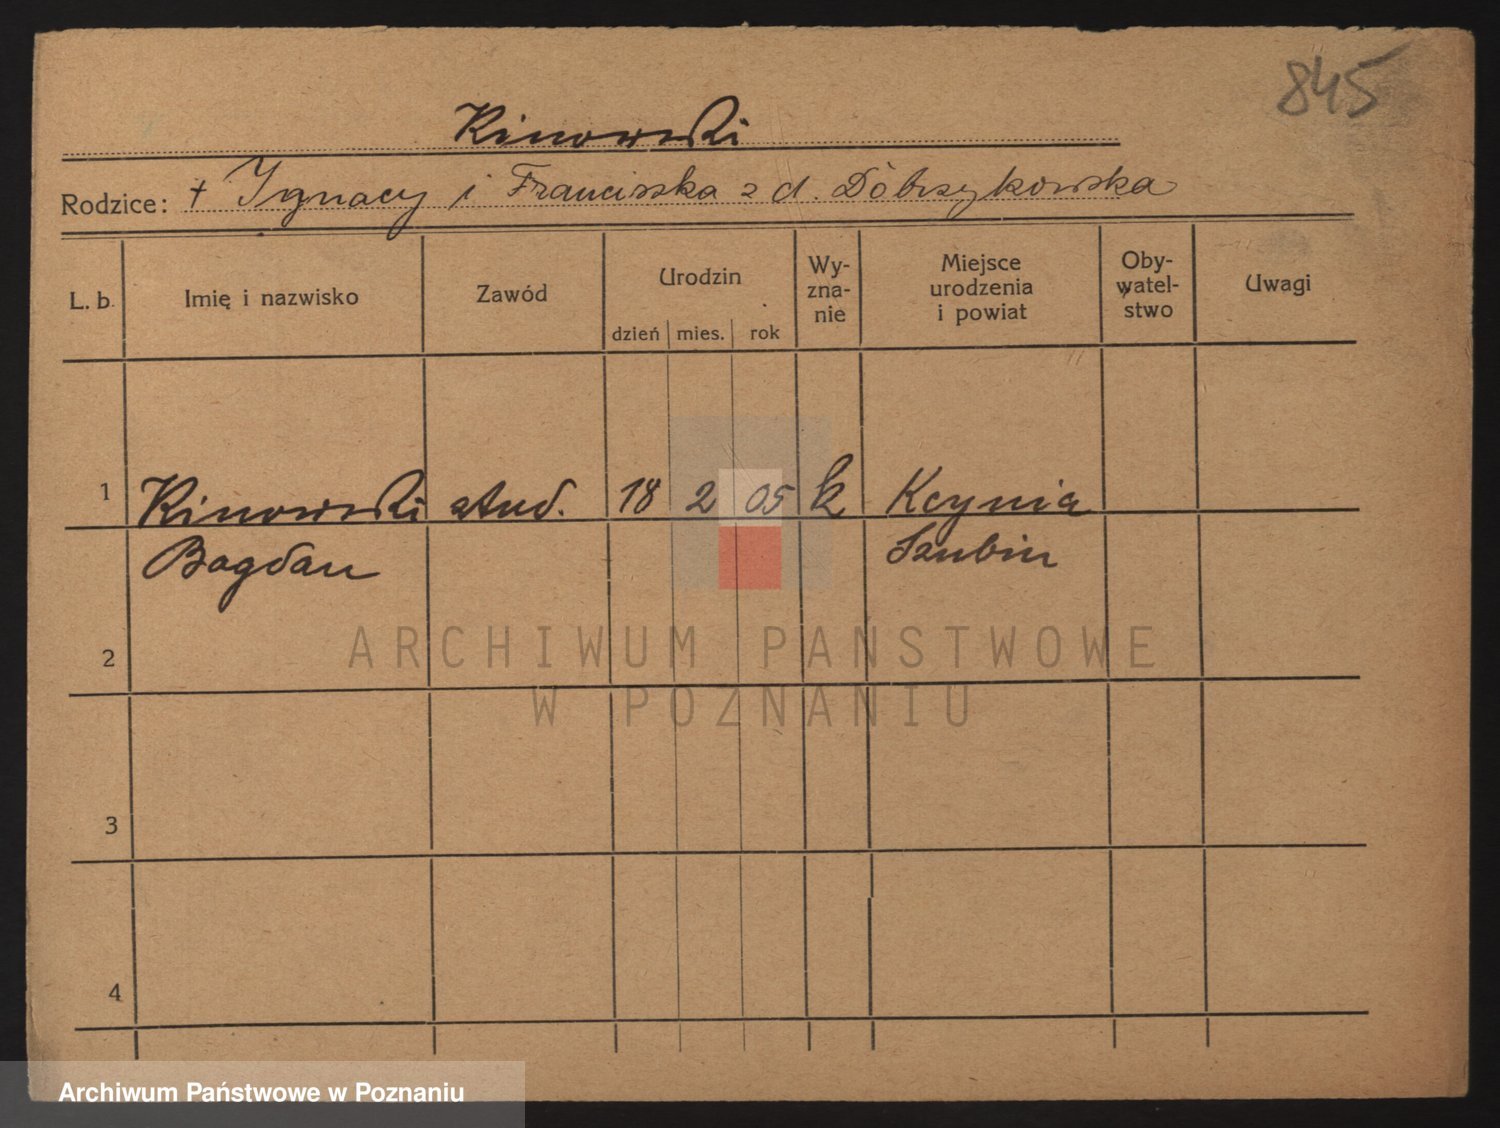 845
Kinowski
Rodzice: † Ignacy i Franciszka z d. Dobrzykowska
L. b. Imię i nazwisko Zawód Urodzin dzień mies. rok Wy- zna- nie Miejsce urodzenia i powiat Oby- watel- stwo Uwagi
1 Kinowski stud. 18 2 05 k Kcynia
Bogdan Szubin
2
3
4
ARCHIWUM PAŃSTWOWE
W POZNANIU
Archiwum Państwowe w Poznaniu